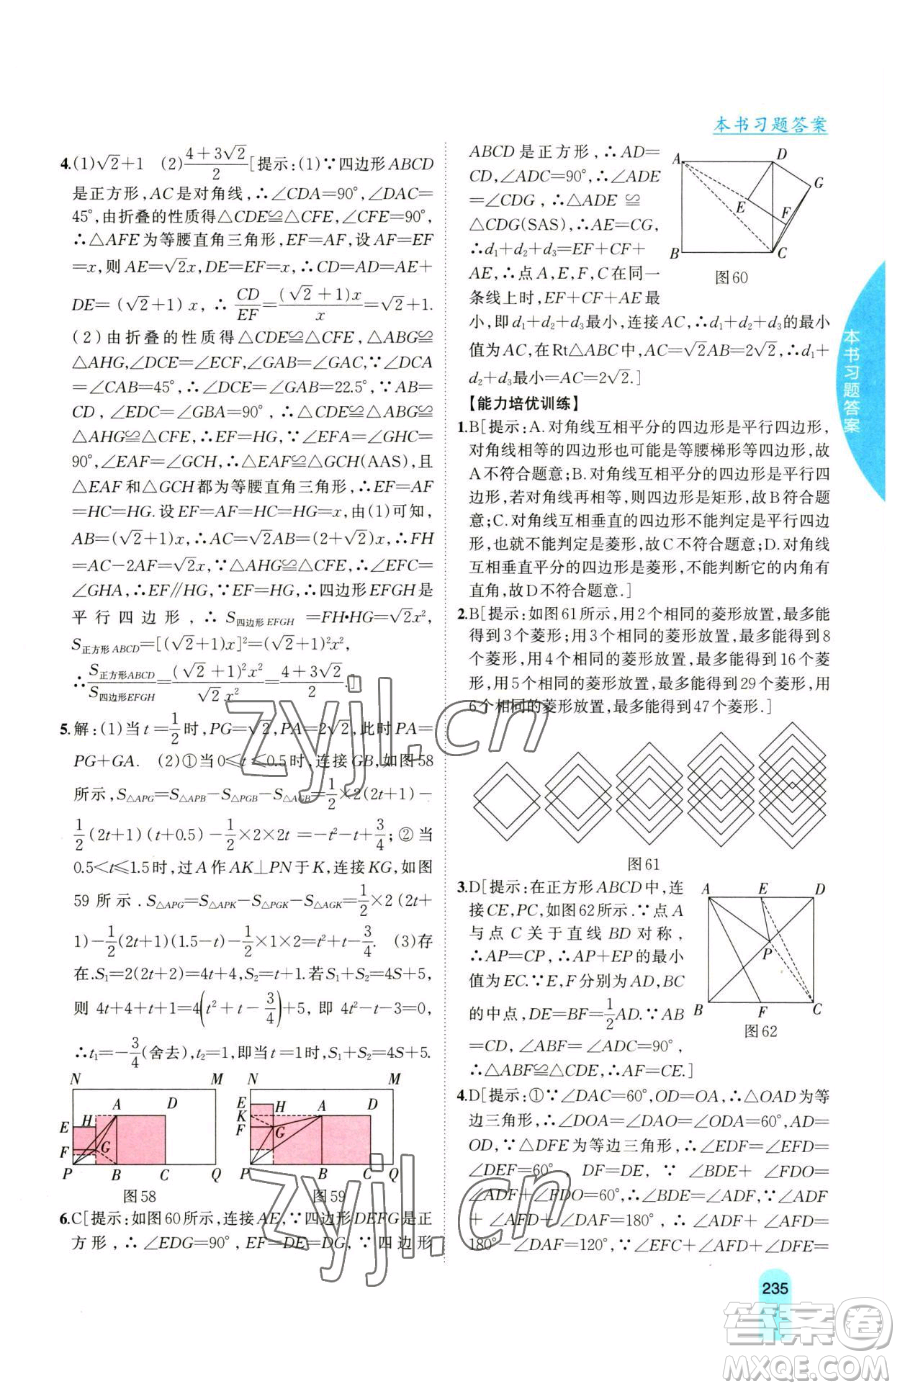 本书习题答案
4.(1)√2+1 (2)(4+3√2)/2[提示:(1)∵四边形ABCD
是正方形,AC是对角线,∴∠CDA=90°,∠DAC=
45°,由折叠的性质得△CDE≌△CFE,∠CFE=90°,
∴△AFE为等腰直角三角形,EF=AF,设AF=EF
=x,则AE=√2x,∴DE=EF=x,∴CD=AD=AE+
DE=(√2+1)x,∴CD/EF=(√2+1)x/x=√2+1.
(2)由折叠的性质得△CDE≌△CFE,△ABG≌
△AHG,∠DCE=∠ECF,∠GAB=∠GAC,∵∠DCA
=∠CAB=45°,∴∠DCE=∠GAB=22.5°,∵∠CDE
=90°,∴∠DEC=∠GBA=90°,∵∠EFA=∠GHC=
90°,∴EF=HG,∴△EAF≌△GCH(AAS),且
△EAF和△GCH都为等腰直角三角形,∴EF=AF
=HC=HG.设EF=AF=HC=HG=x,由(1)可知,
AB=(√2+1)x,∴AC=√2AB=√2(√2+1)x,∴FH
=AC-2AF=√2x,∵∠CEF=∠HGA,∴∠EFC=
∠GHA,∴EF∥HG,∵EF=HG,∴四边形EFGH是
平行四边形,∴S四边形EFGH=FH·HG=√2x²,
S正方形ABCD=[(√2+1)x]²=(√2+1)²x²,
∴S正方形ABCD/S四边形EFGH=(√2+1)²x²/√2x²=(4+3√2)/2.]
5.解:(1)当t=1/2时,PG=√2,PA=2√2,此时PA=
PG+GA. (2)①当0<t≤0.5时,连接GB,如图58
所示,S△APG=S△APB-S△PGB-S△AGB=1/2×2(2t+1)-
1/2(2t+1)(t+0.5)-1/2×2×2t=-t²-t+3/4;②当
0.5<t≤1.5时,过A作AK⊥PN于K,连接KG,如图
59所示.S△APG=S△APK-S△PGK-S△AGK=1/2×2(2t+
1)-1/2(2t+1)(1.5-t)-1/2×2×1=t²+t-3/4. (3)存
在.S₁=2(2t+2)=4t+4,S₂=t+1.若S₁+S₂=4S,
则4t+4+t+1=4(t²+t-3/4),即4t²-t-3=0.
∴t₁=-3/4(舍去),t₂=1,即当t=1时,S₁+S₂=4S.
N M
E H A D
F G
P B C Q
图58
N M
E H
K A D
F G
P B C Q
图59
6.C[提示:如图60所示,连接AE,∵四边形DEFG是正
方形,∴∠EDG=90°,EF=DE=DG,∵四边形
ABCD是正方形,∴AD=
CD,∠ADC=90°,∴∠ADE
=∠CDG,∴△ADE≌
△CDG(SAS),∴AE=CG,
∴d₁+d₂+d₃=EF+CF+
AE,∴点A,E,F,C在同一
条线上时,EF+CF+AE最
小,即d₁+d₂+d₃最小,连接AC,∴d₁+d₂+d₃最小
值为AC,在Rt△ABC中,AC=√2AB=2√2,∴d₁+
d₂+d₃最小=AC=2√2.]
A D G
E F
B C
图60
【能力培优训练】
1.B[提示:A.对角线互相平分的四边形是平行四边形,
对角线相等的四边形也可能是等腰梯形等四边形,故
A不符合题意;B.对角线互相平分的四边形是平行四
边形,若对角线再相等,则四边形是矩形,故B符合题
意;C.对角线互相垂直的四边形不能判定是平行四边
形,也不能判定是菱形,故C不符合题意;D.对角线
互相垂直平分的四边形是菱形,不能判断它的内角有
直角,故D不符合题意.]
2.B[提示:如图61所示,用2个相同的菱形放置,最多能
得到3个菱形;用3个相同的菱形放置,最多能得到8
个菱形,用4个相同的菱形放置,最多能得到16个菱
形,用5个相同的菱形放置,最多能得到29个菱形,用
6个相同的菱形放置,最多能得到47个菱形.]
图61
3.D[提示:在正方形ABCD中,连
接CE,PC,如图62所示.∵点A
与点C关于直线BD对称,
∴AP=CP,∴AP+EP的最小
值为EC.∵E,F分别为AD,BC
的中点,DE=BF=1/2AD.∵AB
=CD,∠ABF=∠ADC=90°,
∴△ABF≌△CDE,∴AF=CE.]
A E D
P
B F C
图62
4.D[提示:①∵∠DAC=60°,OD=OA,∴△OAD为等
边三角形,∴∠DOA=∠DAO=∠ODA=60°,AD=
OD,∵△DFE为等边三角形,∴∠EDF=∠EFD=
∠DEF=60°,DF=DE,∵∠BDE+∠FDO=
∠ADF+∠FDO=60°,∴∠BDE=∠ADF,∵∠ADF
+∠AFD+∠DAF=180°,∴∠ADF+∠AFD=
180°-∠DAF=120°,∵∠EFC+∠AFD+∠DFE=
本书习题答案
235
zyjl.cn
zyjl.cn
答案圈
MXQE.COM